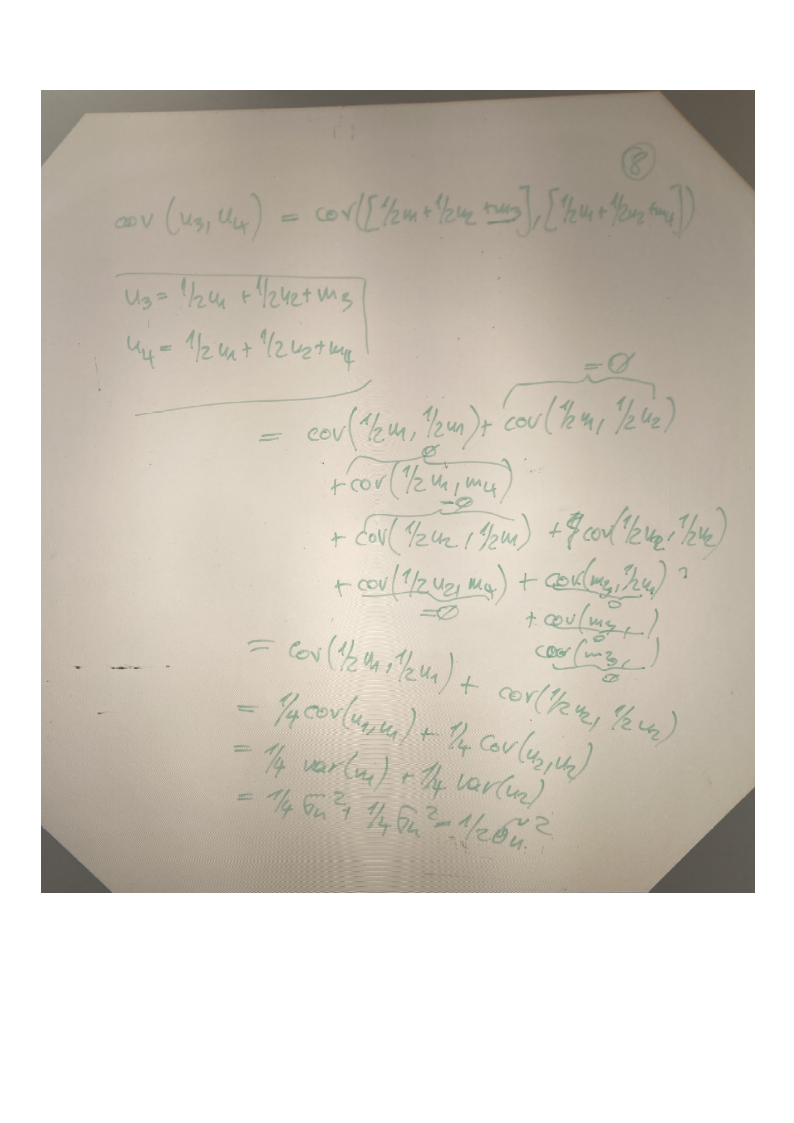 8
cov (u3, u4) = cov([1/2u1+1/2u2+m3],[1/2u1+1/2u2+m4])
u3= 1/2u1 +1/2u2+m3
u4= 1/2u1+ 1/2u2+m4
=∅
= cov(1/2u1, 1/2u1)+ cov(1/2u1, 1/2u2)
∅
+cov(1/2u1, m4)
=∅
+ cov(1/2u2, 1/2u1) + cov(1/2u2, 1/2u2)
+ cov(1/2u2, m4) + cov(m3, 1/2u1)
=∅ 0
+ cov(m3, )
0
cov(m3, )
∅
= cov(1/2u1, 1/2u1) + cov(1/2u2, 1/2u2)
= 1/4cov(u1,u1) + 1/4 cov(u2,u2)
= 1/4 var(u1) + 1/4 var(u2)
= 1/4 σu² + 1/4 σu² = 1/2σu²